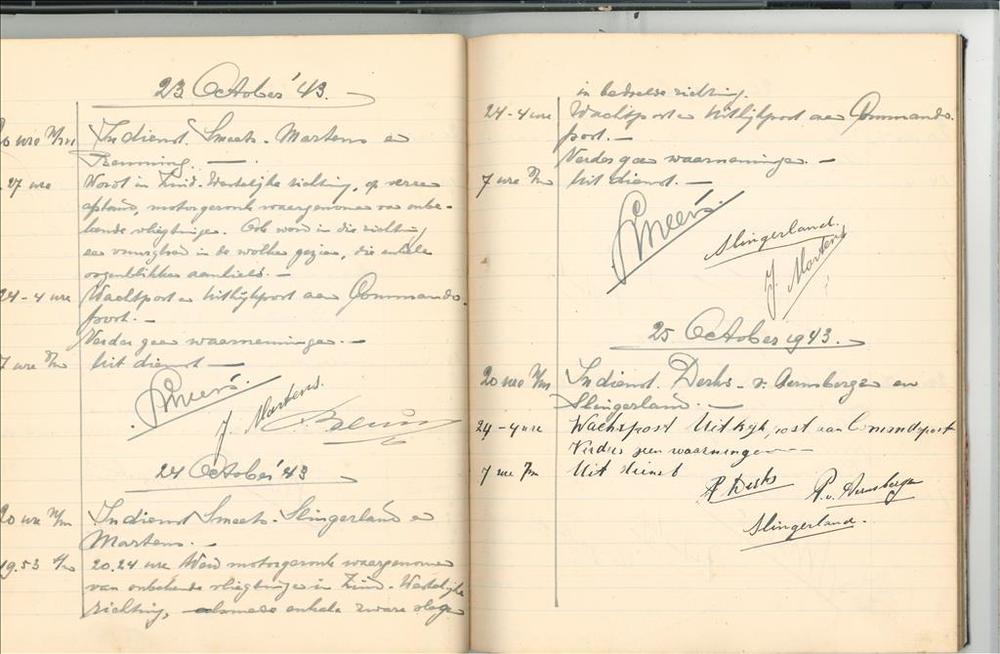 23 October '43.
20 ure n/m In dienst. Smeets. Martens en
Benning. —.
27 ure Wordt in Zuid-Westelijke richting, op verren
afstand, motorgeronk waargenomen van onbe-
kende vliegtuigen. Ook word in die richting
een vuurgloed in de wolken gezien, die enkele
oogenblikken aanhield. —
24-4 ure Wachtpost en Uitkijkpost aan Commando-
post. —
Verder geen waarnemingen. —
7 ure v/m Uit dienst —
Smeets.
J. Martens.
24 October '43
20 ure n/m In dienst Smeets. Slingerland en
Martens. —.
19.53 20.24 ure Werd motorgeronk waargenomen
van onbekende vliegtuigen in Zuid-Westelijke
richting, alsmede enkele zware slagen
in bedoelde richting.
24-4 ure Wachtpost en Uitkijkpost aan Commando-
post. —
Verder geen waarnemingen. —
7 ure v/m Uit dienst. —
Smeets.
Slingerland.
J. Martens
25 October 1943.
20 ure n/m In dienst. Derks - v. Aernsbergen en
Slingerland. —
24-4 ure Wachtpost Uitkijkpost aan Commdpost
Verder geen waarningen —
7 ure Uit dienst
P. Derks
P. v. Aernsbergen
Slingerland.